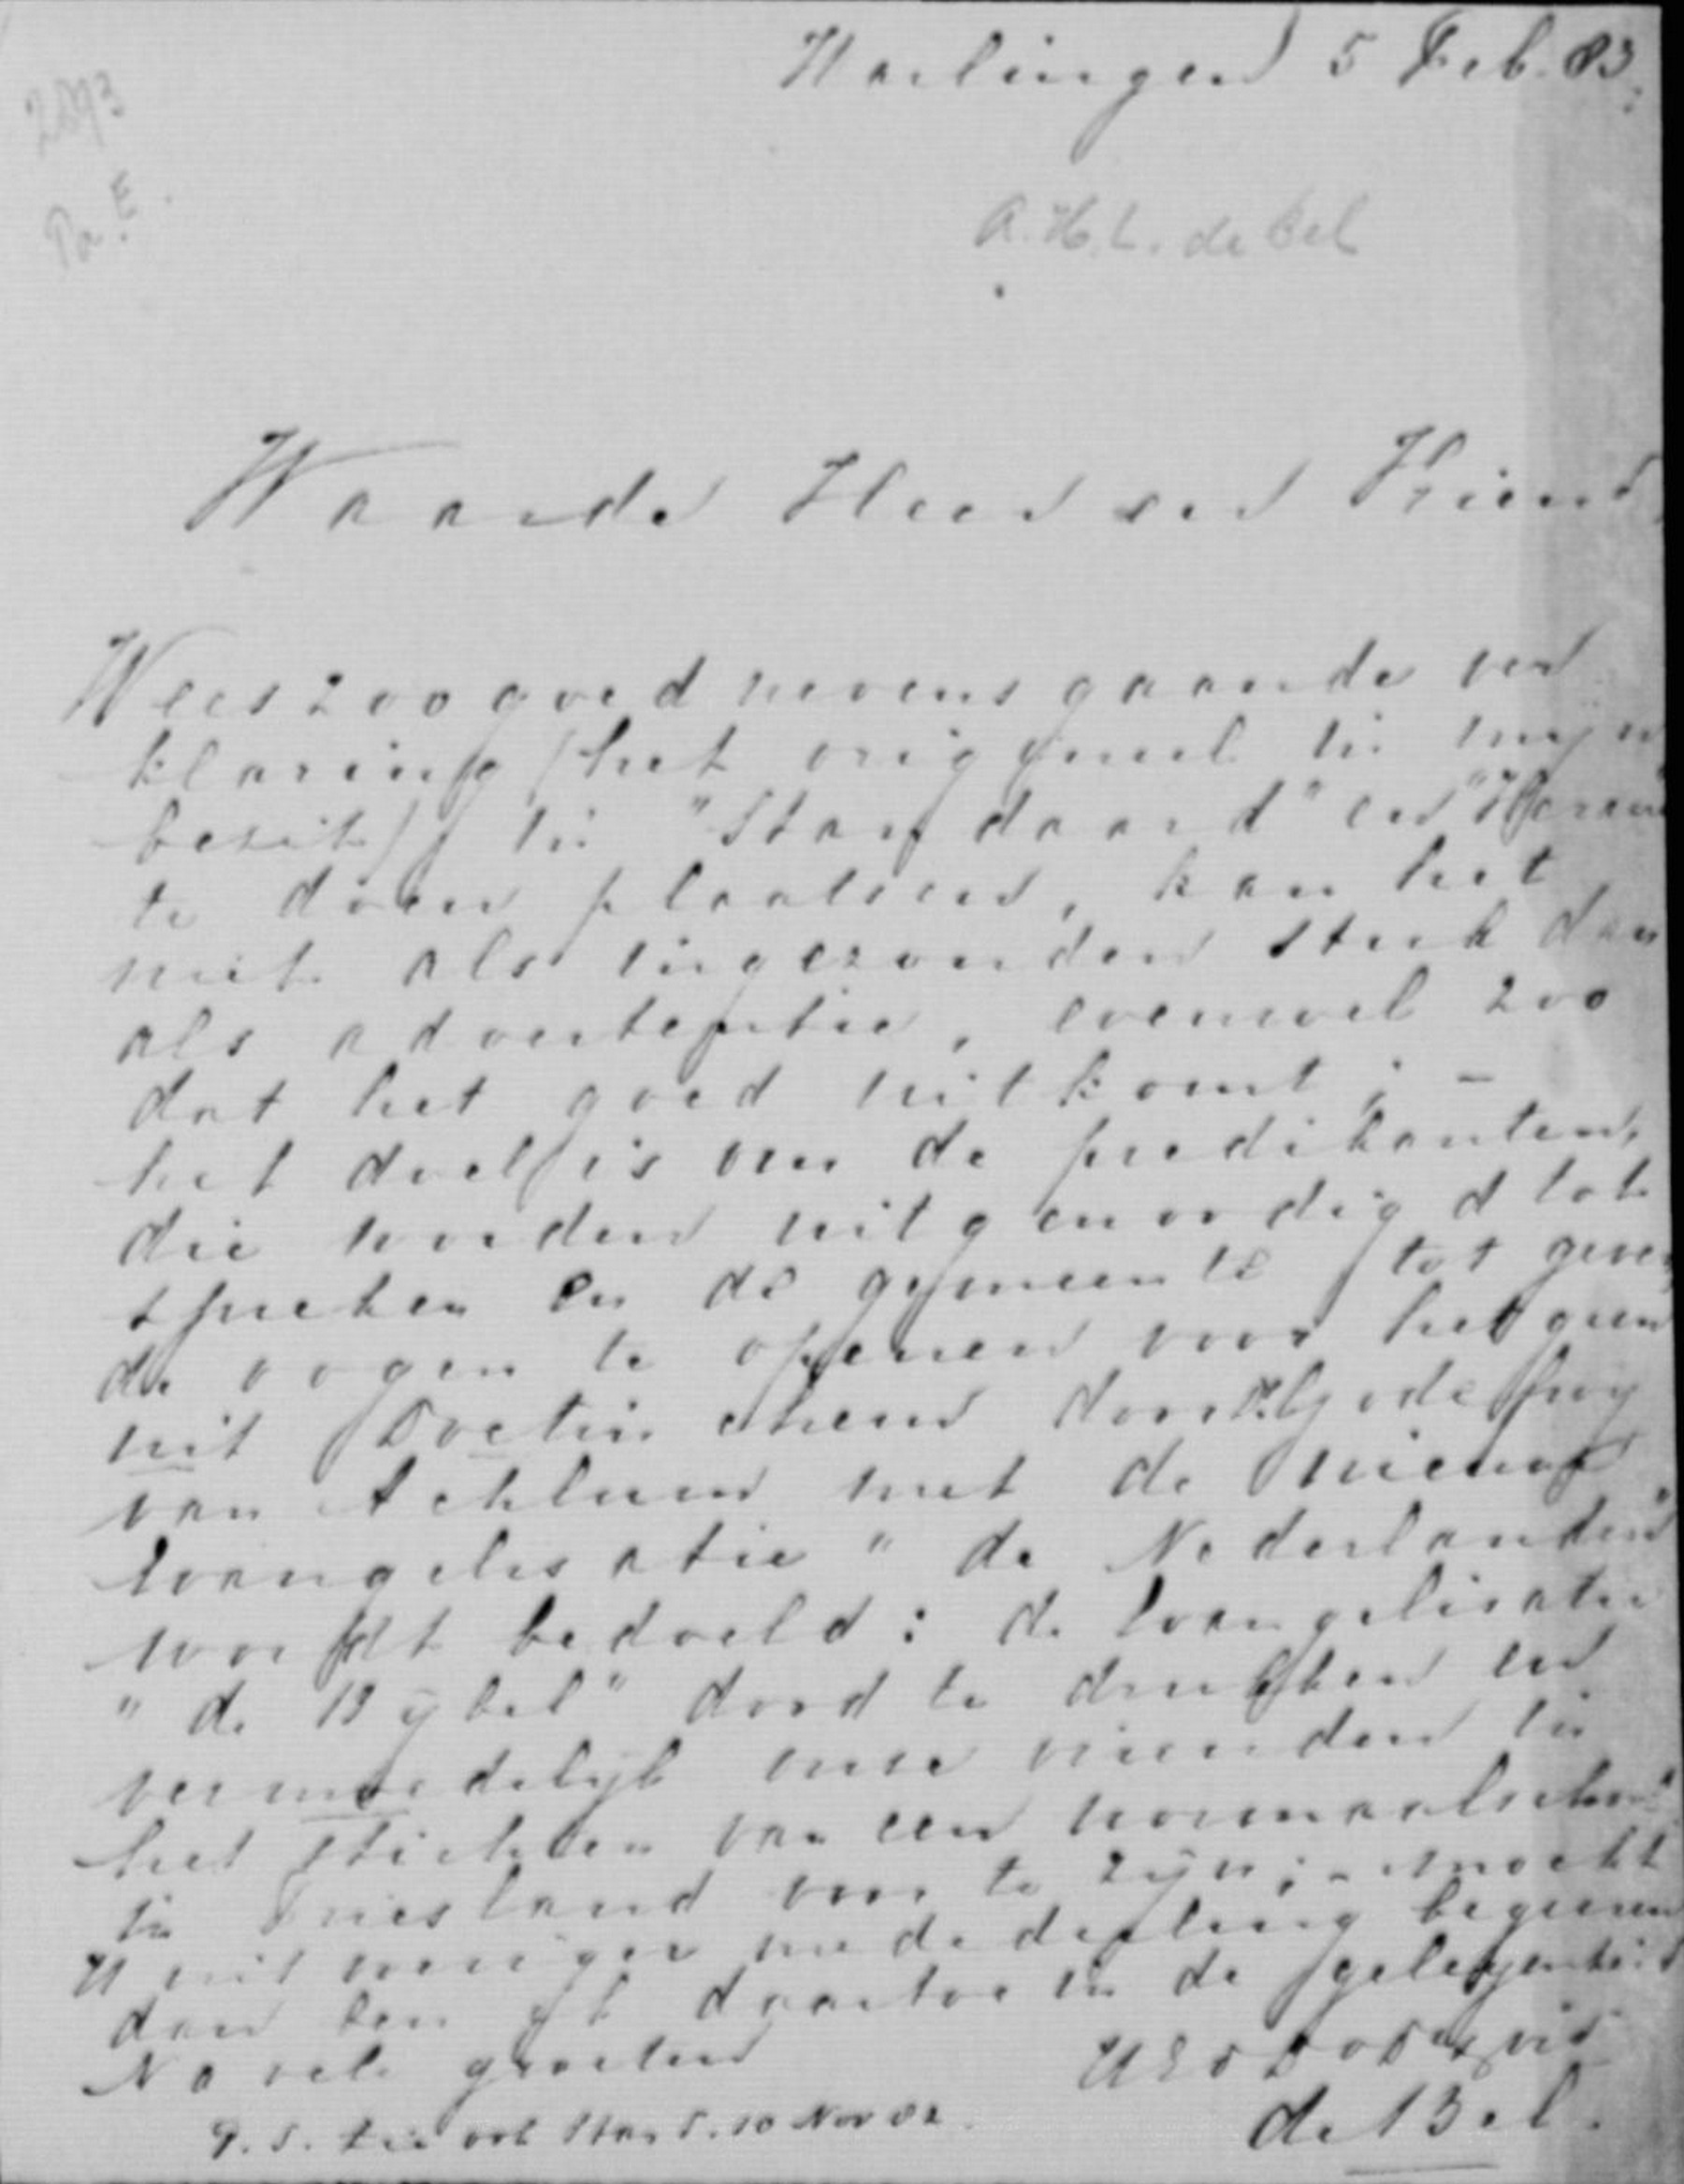 Harlingen 5 Feb. 83.
2893
Pa. E.
A. H. L. de Bel
Waarde Heer en Vriend,
Wees zoo goed nevens gaande ver
klaring (het origineel in mijn
bezit) in "Standaard" en "Heraut"
te doen plaatsen, kan het
niet als ingezonden stuk dan
als advertentie, evenwel zoo
dat het goed uitkomt; -
het doel is om de predikanten,
die worden uitgenoodigd tot
spreken en de gemeente tot geven
de oogen te openen voor hetgeen
uit Doetinchem door
van Achlum met de nieuwe
Evangelisatie "de Nederlanden"
wordt bedoeld: de Evangelisatie
"de Bybel" dood te drukken en
vermoedelyk onze vrienden in
het stichten van een normaalschool
in Friesland voor te zyn; - mocht
U uit weniger mededeeling begeeren
dan ben yk daartoe in de gelegenheid
Na vele groeten
de Bel.
P.S. Zie ook Stand. 10 Nov 82.